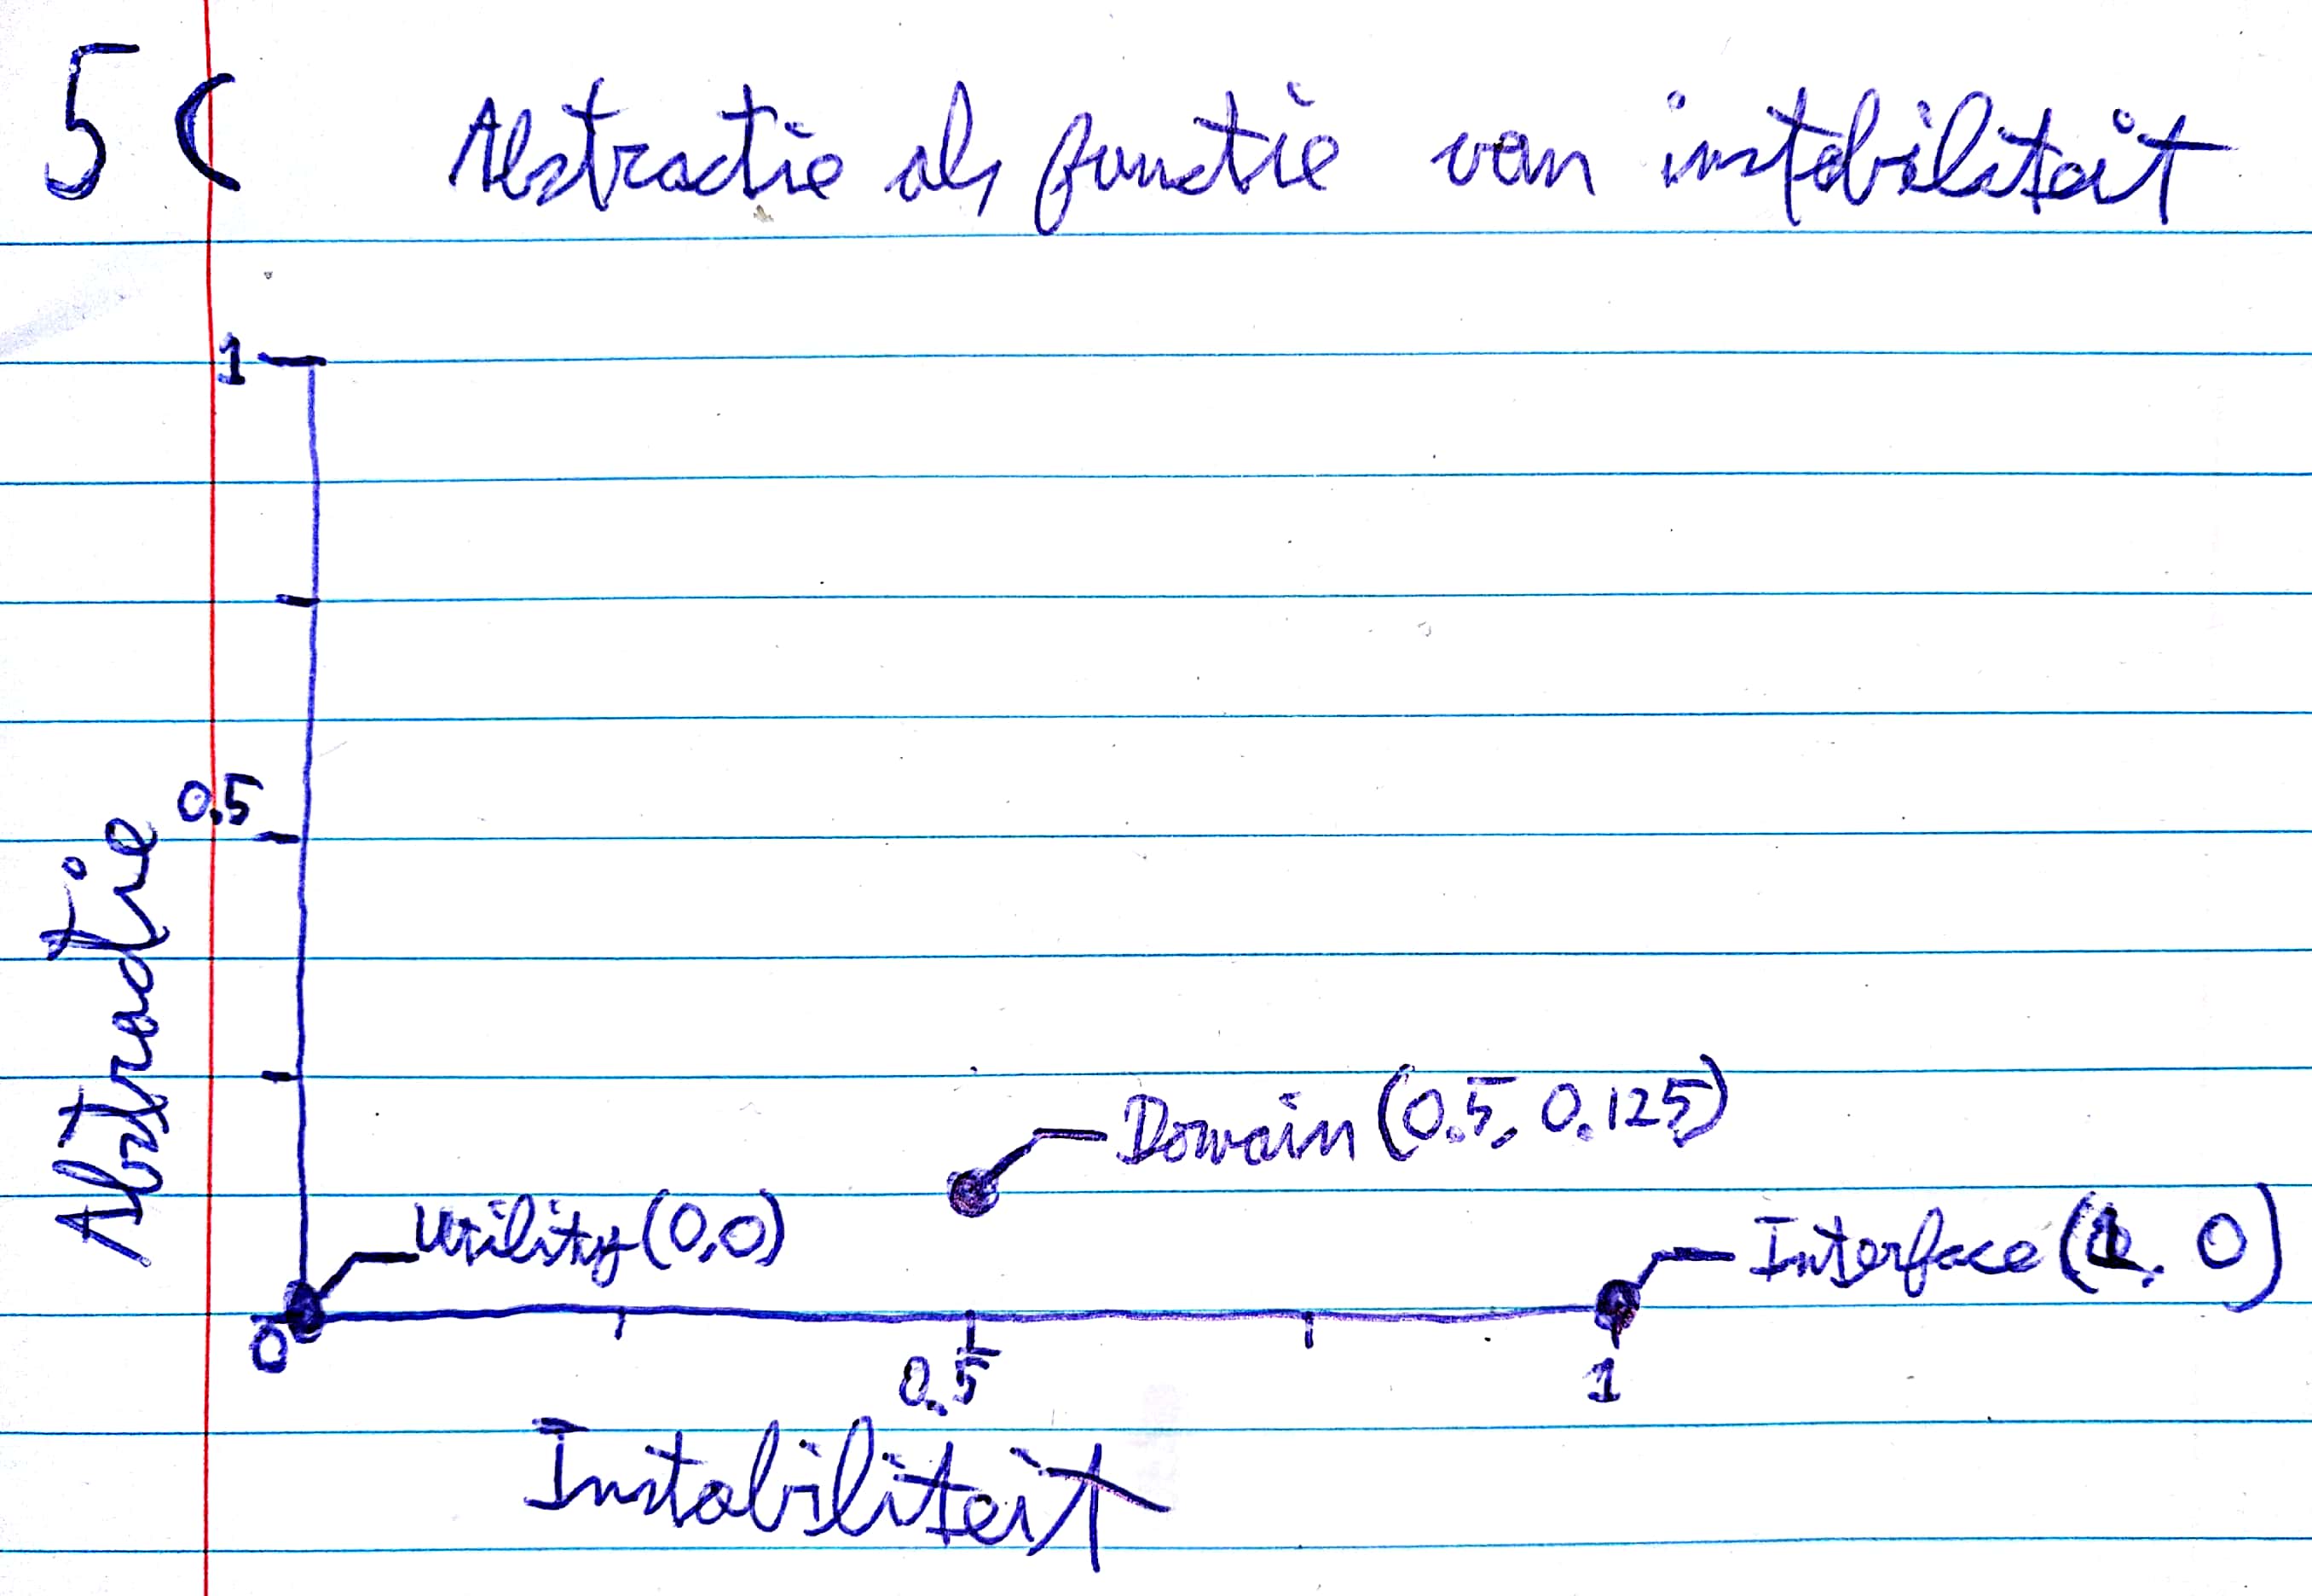 5c Abstractie als functie van instabiliteit
1
0.5
Abstractie
Domain (0.5, 0.125)
Utility (0,0)
Interface (1, 0)
0
0.5
1
Instabiliteit